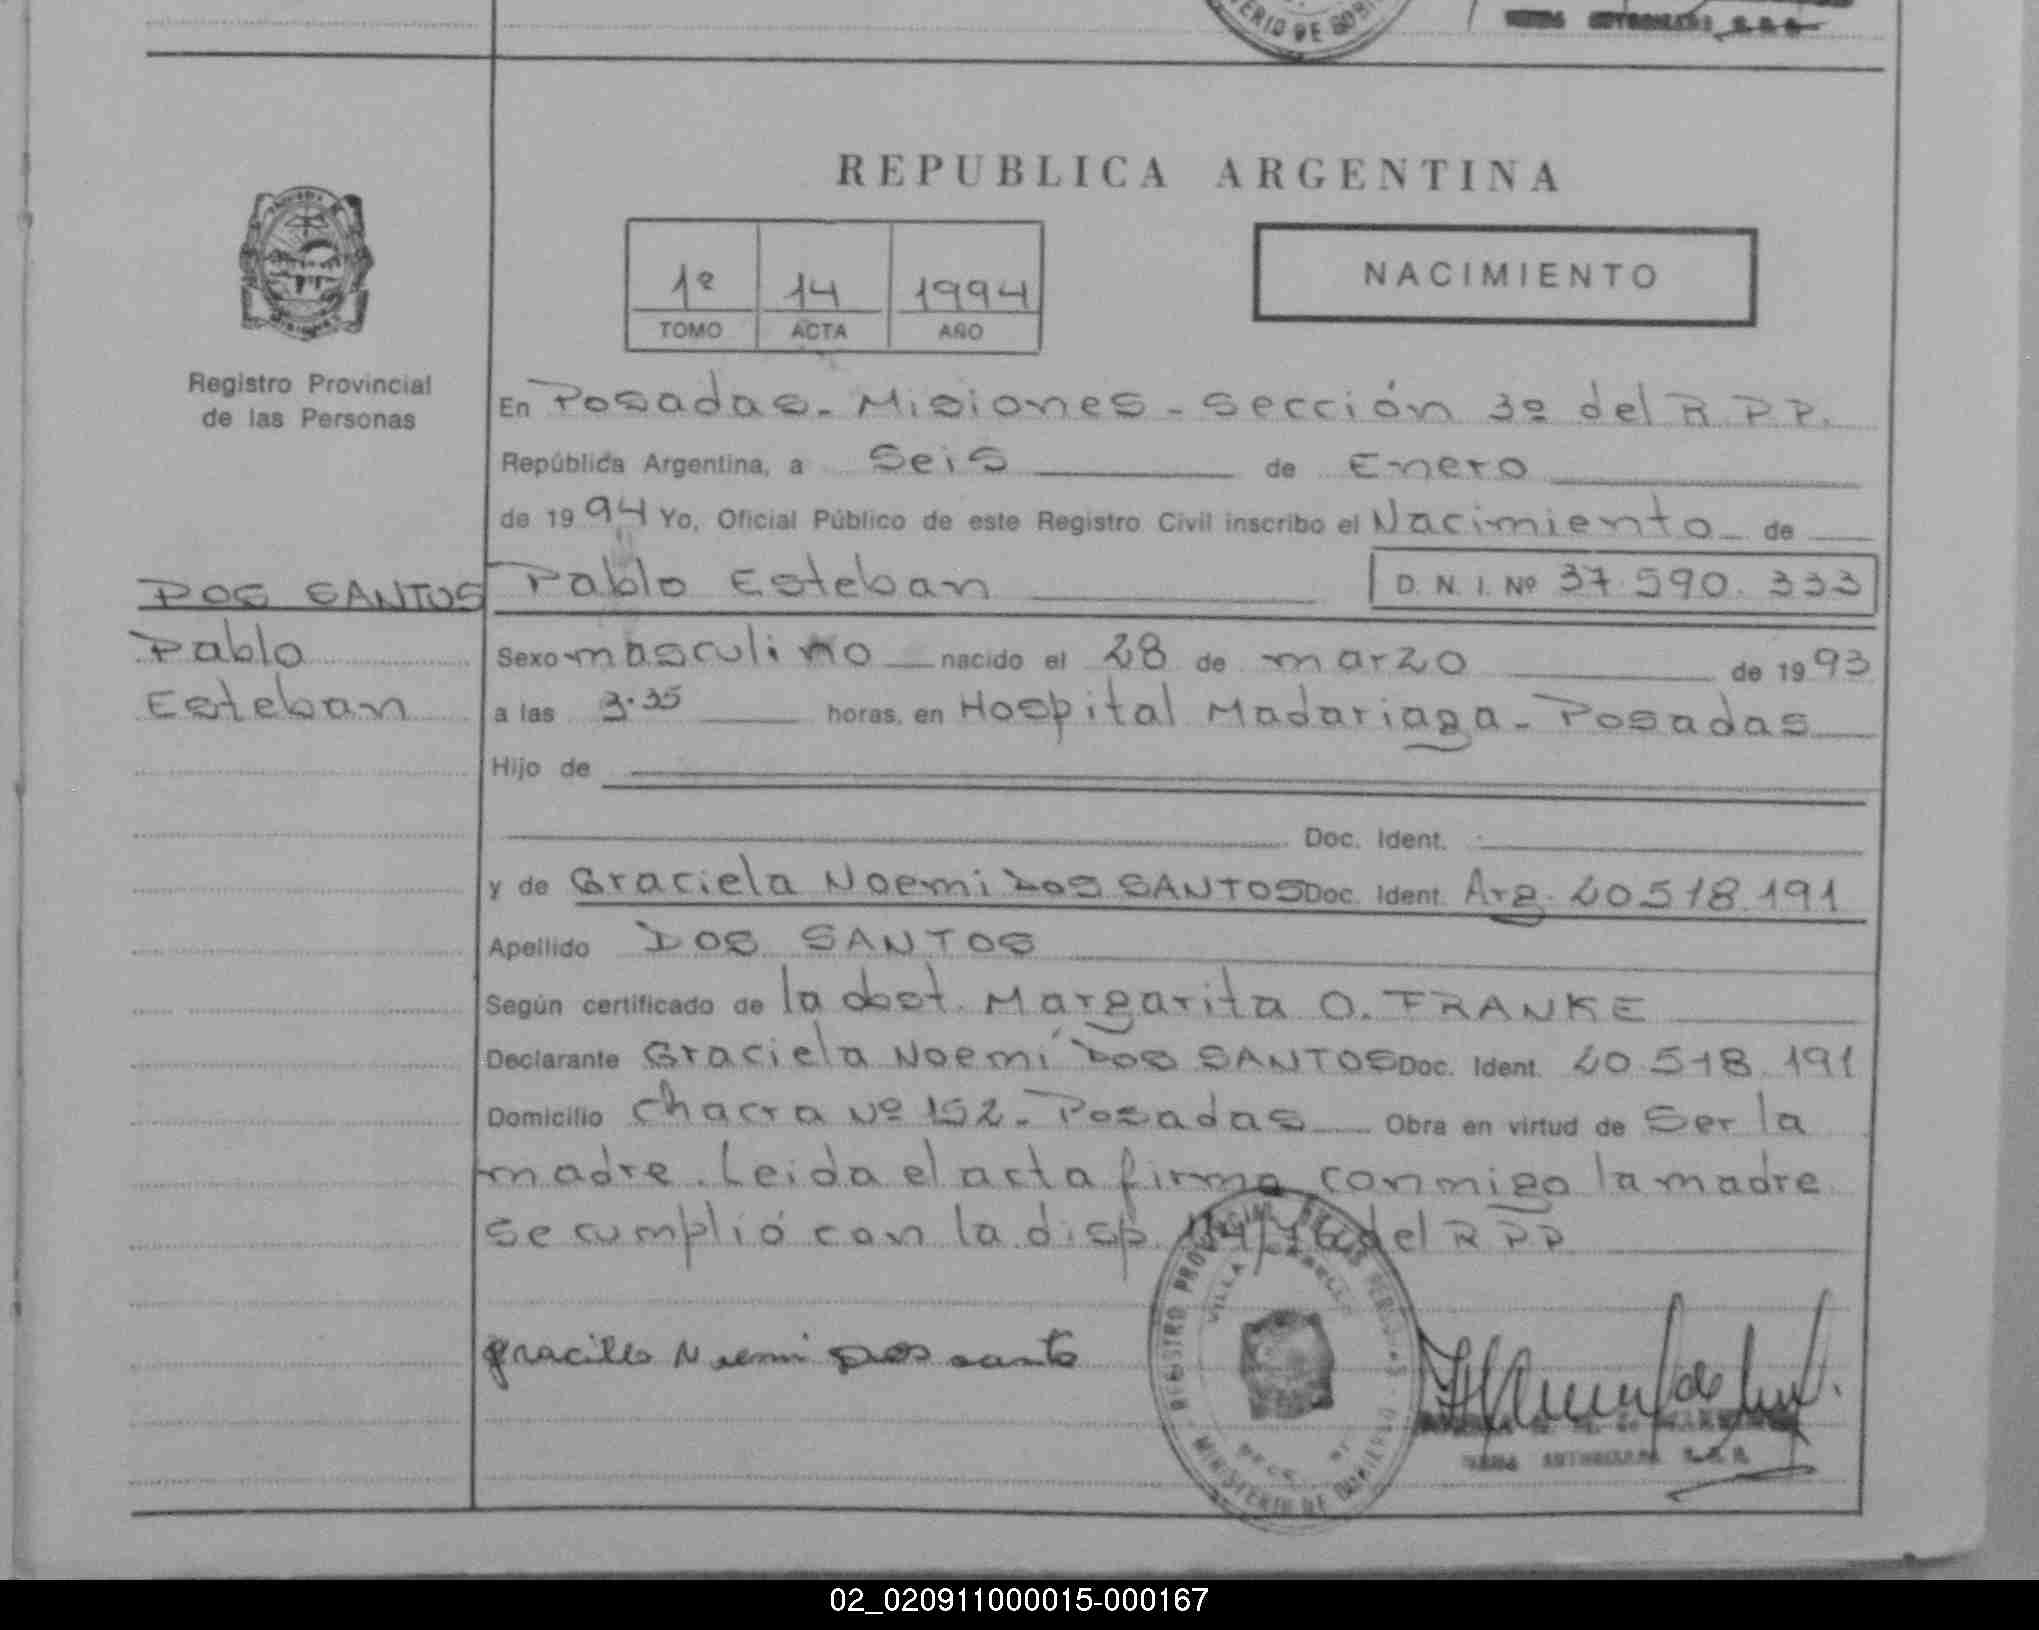 ERIO DE GOBI
REPUBLICA ARGENTINA
1º 14 1994
TOMO ACTA AÑO
NACIMIENTO
Registro Provincial
de las Personas
En Posadas - Misiones - Sección 3º del R.P.P.
República Argentina, a Seis de Enero
de 1994 Yo, Oficial Público de este Registro Civil inscribo el Nacimiento de
DOS SANTOS Pablo Esteban D. N. I. Nº 37.590.333
Pablo
Esteban
Sexo masculino nacido el 28 de marzo de 1993
a las 3.35 horas, en Hospital Madariaga - Posadas
Hijo de
Doc. Ident.
y de Graciela Noemi DOS SANTOS Doc. Ident. Arg. 20.518.191
Apellido DOS SANTOS
Según certificado de la obst. Margarita O. FRANKE
Declarante Graciela Noemí DOS SANTOS Doc. Ident. 20.518.191
Domicilio Chacra Nº 152 - Posadas Obra en virtud de Ser la
madre. Leida el acta firma conmigo la madre
se cumplió con la disp. del R P P
REGISTRO PROVINCIAL DE LAS PERSONAS
VILLA
MINISTERIO DE GOBIERNO
02_020911000015-000167